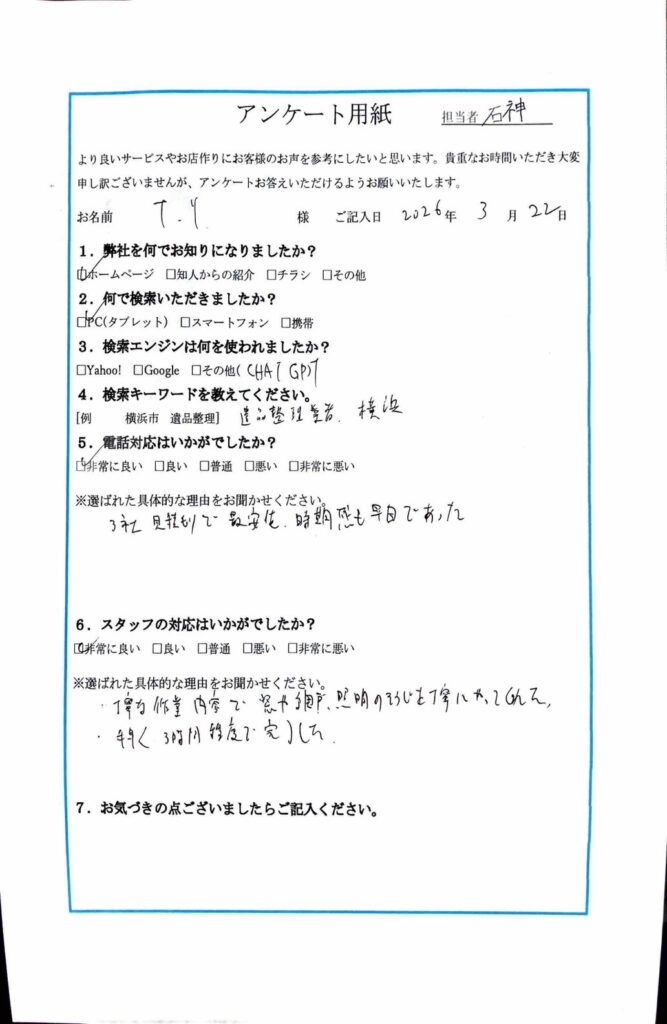 アンケート用紙
担当者 石神
より良いサービスやお店作りにお客様のお声を参考にしたいと思います。貴重なお時間いただき大変
申し訳ございませんが、アンケートお答えいただけるようお願いいたします。
お名前 T.Y 様 ご記入日 2026年 3月 22日
1．弊社を何でお知りになりましたか？
□ホームページ □知人からの紹介 □チラシ □その他
2．何で検索いただきましたか？
□PC(タブレット) □スマートフォン □携帯
3．検索エンジンは何を使われましたか？
□Yahoo! □Google □その他( CHAT GPT)
4．検索キーワードを教えてください。
[例 横浜市 遺品整理] 遺品整理業者、横浜
5．電話対応はいかがでしたか？
□非常に良い □良い □普通 □悪い □非常に悪い
※選ばれた具体的な理由をお聞かせください。
3社見積りで最安値、時期感も早目であった
6．スタッフの対応はいかがでしたか？
□非常に良い □良い □普通 □悪い □非常に悪い
※選ばれた具体的な理由をお聞かせください。
・丁寧な作業内容で窓や網戸、照明のそうじも丁寧にやってくれた。
・手早く3時間程度で完了した。
7．お気づきの点ございましたらご記入ください。